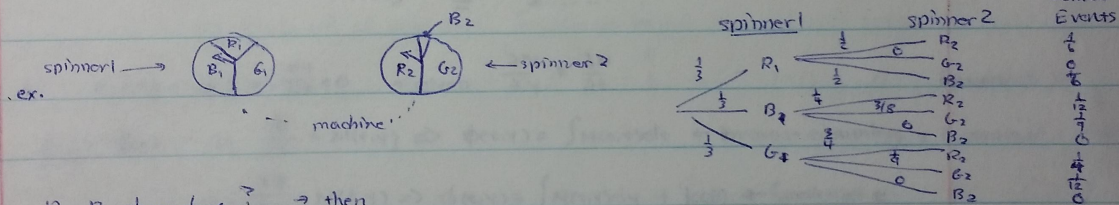 spinner1 →
.ex.
R₁
B₁ G₁
B₂
R₂ G₂
← spinner 2
machine
spinner1 spinner2 Events
1/3 R₁ 1/2 R₂ 1/6
0 G₂ 0
1/2 B₂ 1/6
1/3 B 1/4 R₂ 1/12
3/8 G₂
0 B₂ 0
1/3 G 3/4 R₂
1/4 G₂ 1/12
0 B₂ 0
? → then